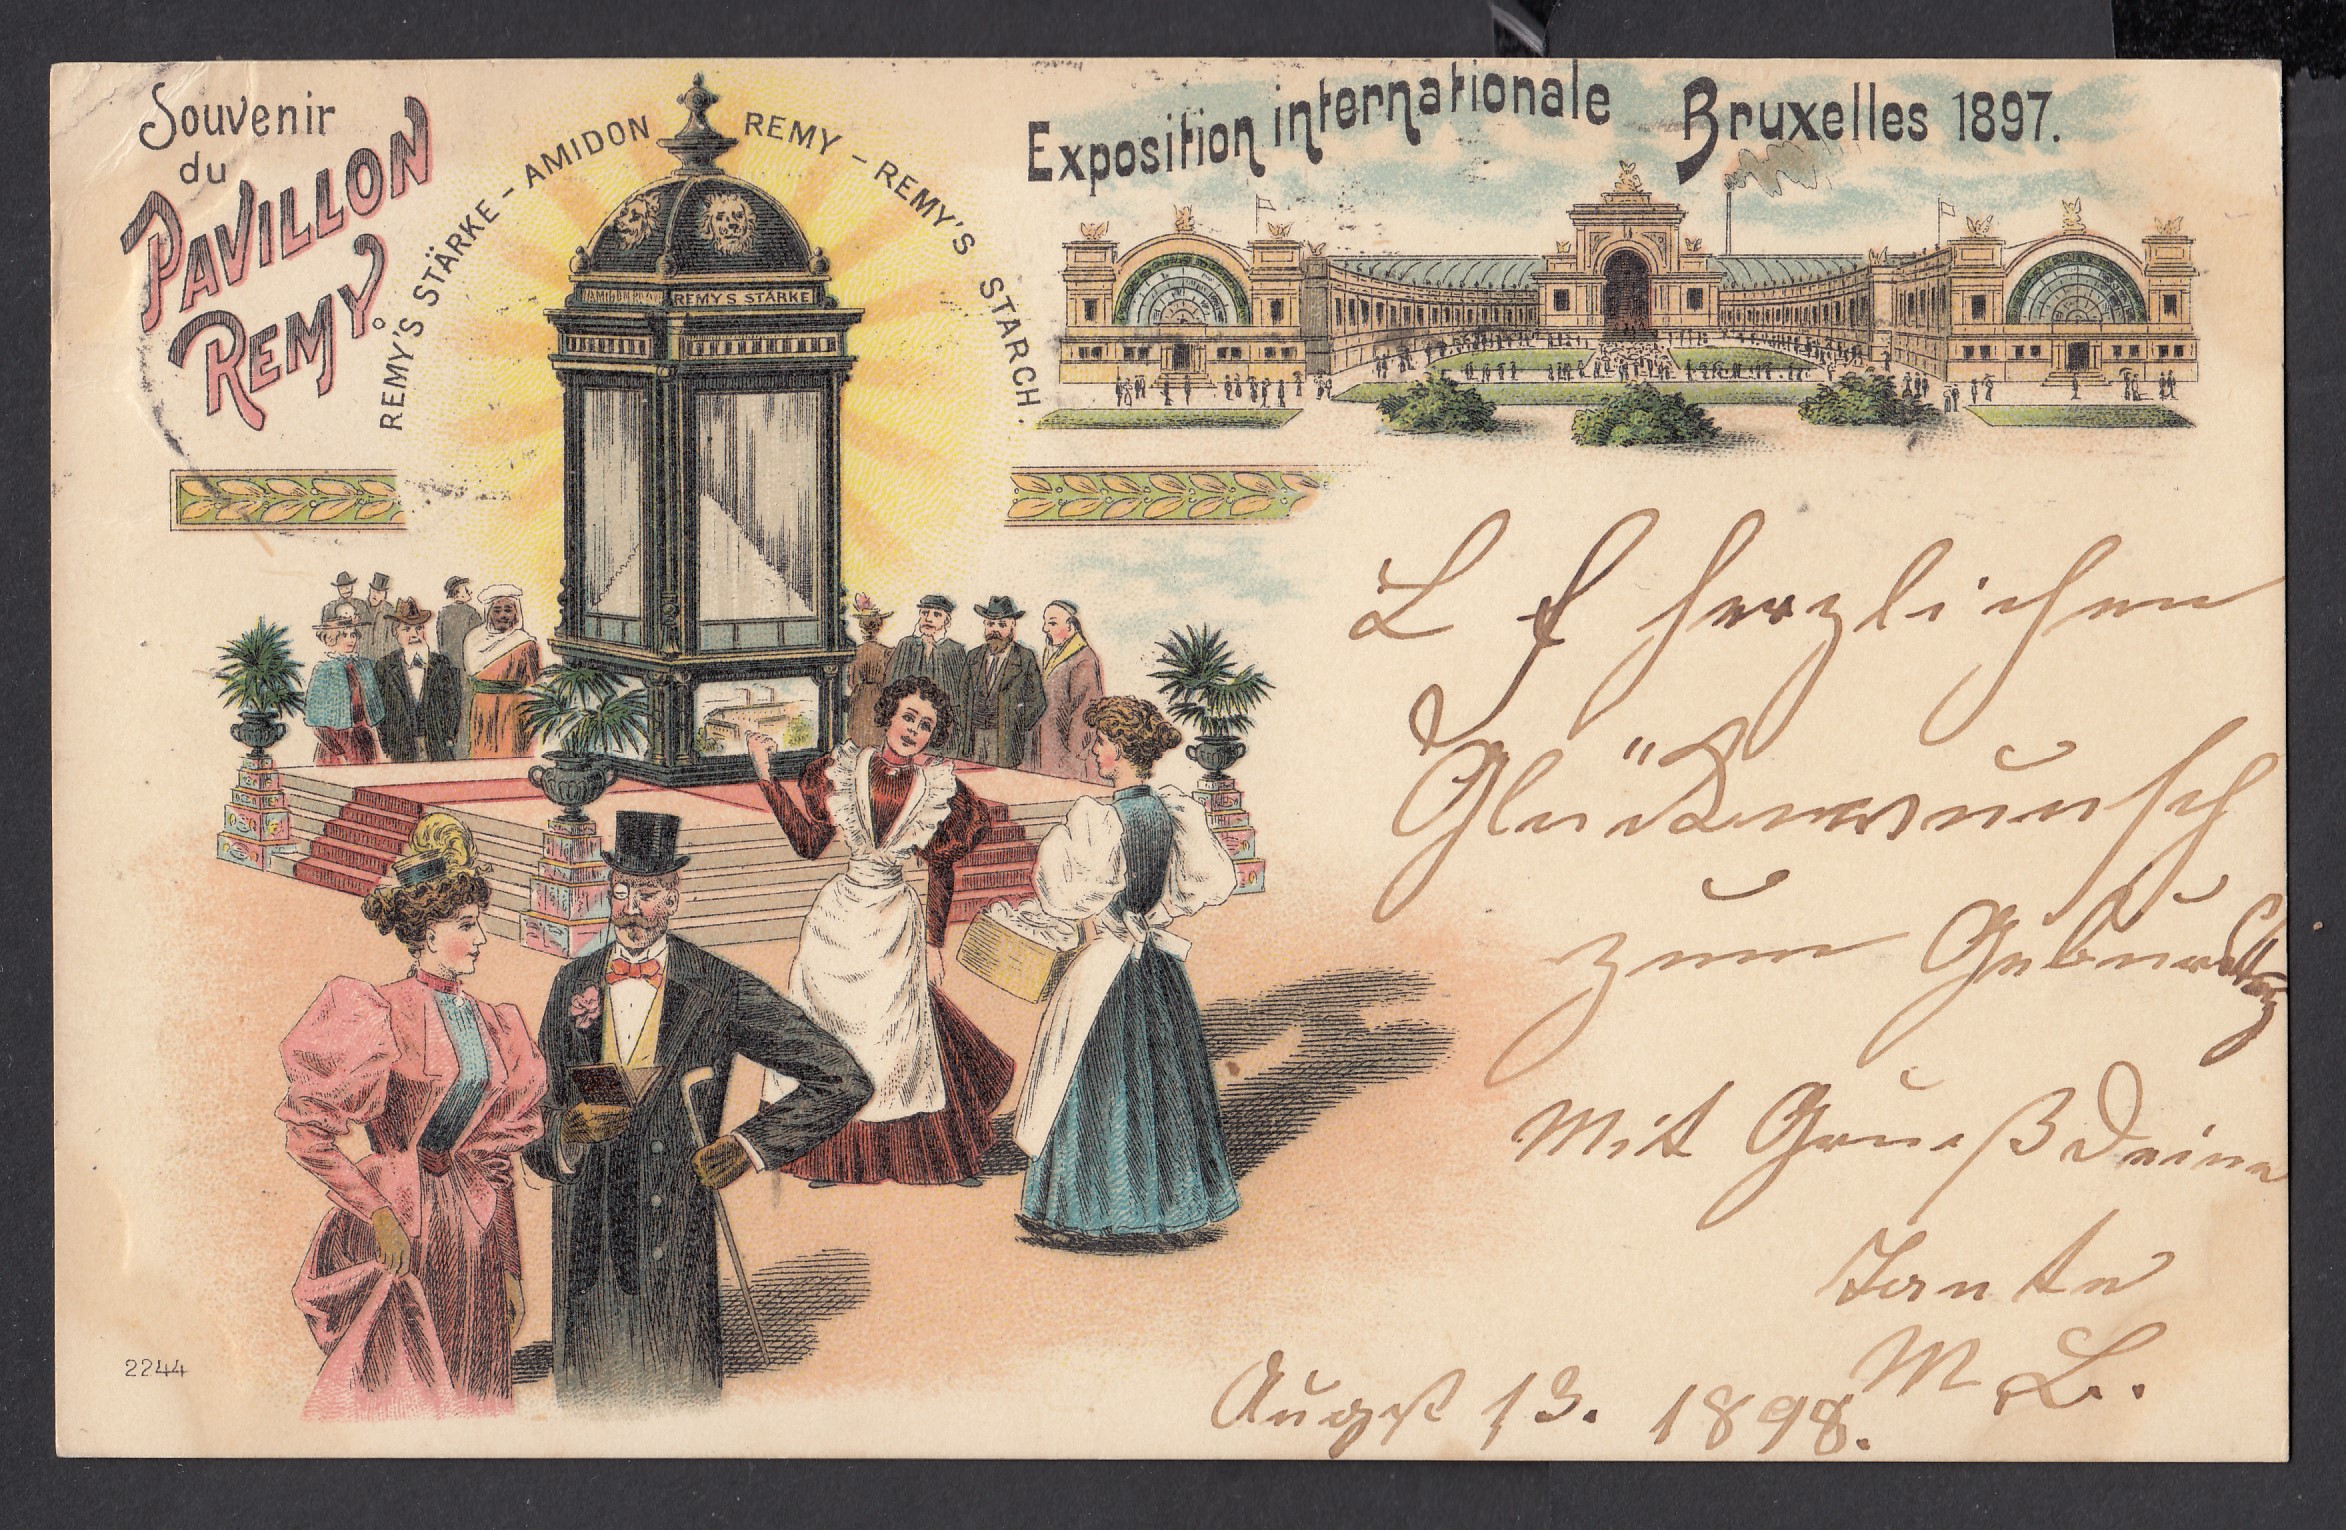 Souvenir
du
PAVILLON
REMY
REMY'S STÄRKE - AMIDON REMY - REMY'S STARCH.
REMYS STÄRKE
Exposition internationale Bruxelles 1897.
herzlichen
Glückwunsch
zum Geburtstag
Mit Gruß Deine
Tante
M. L.
August 13. 1898.
2244